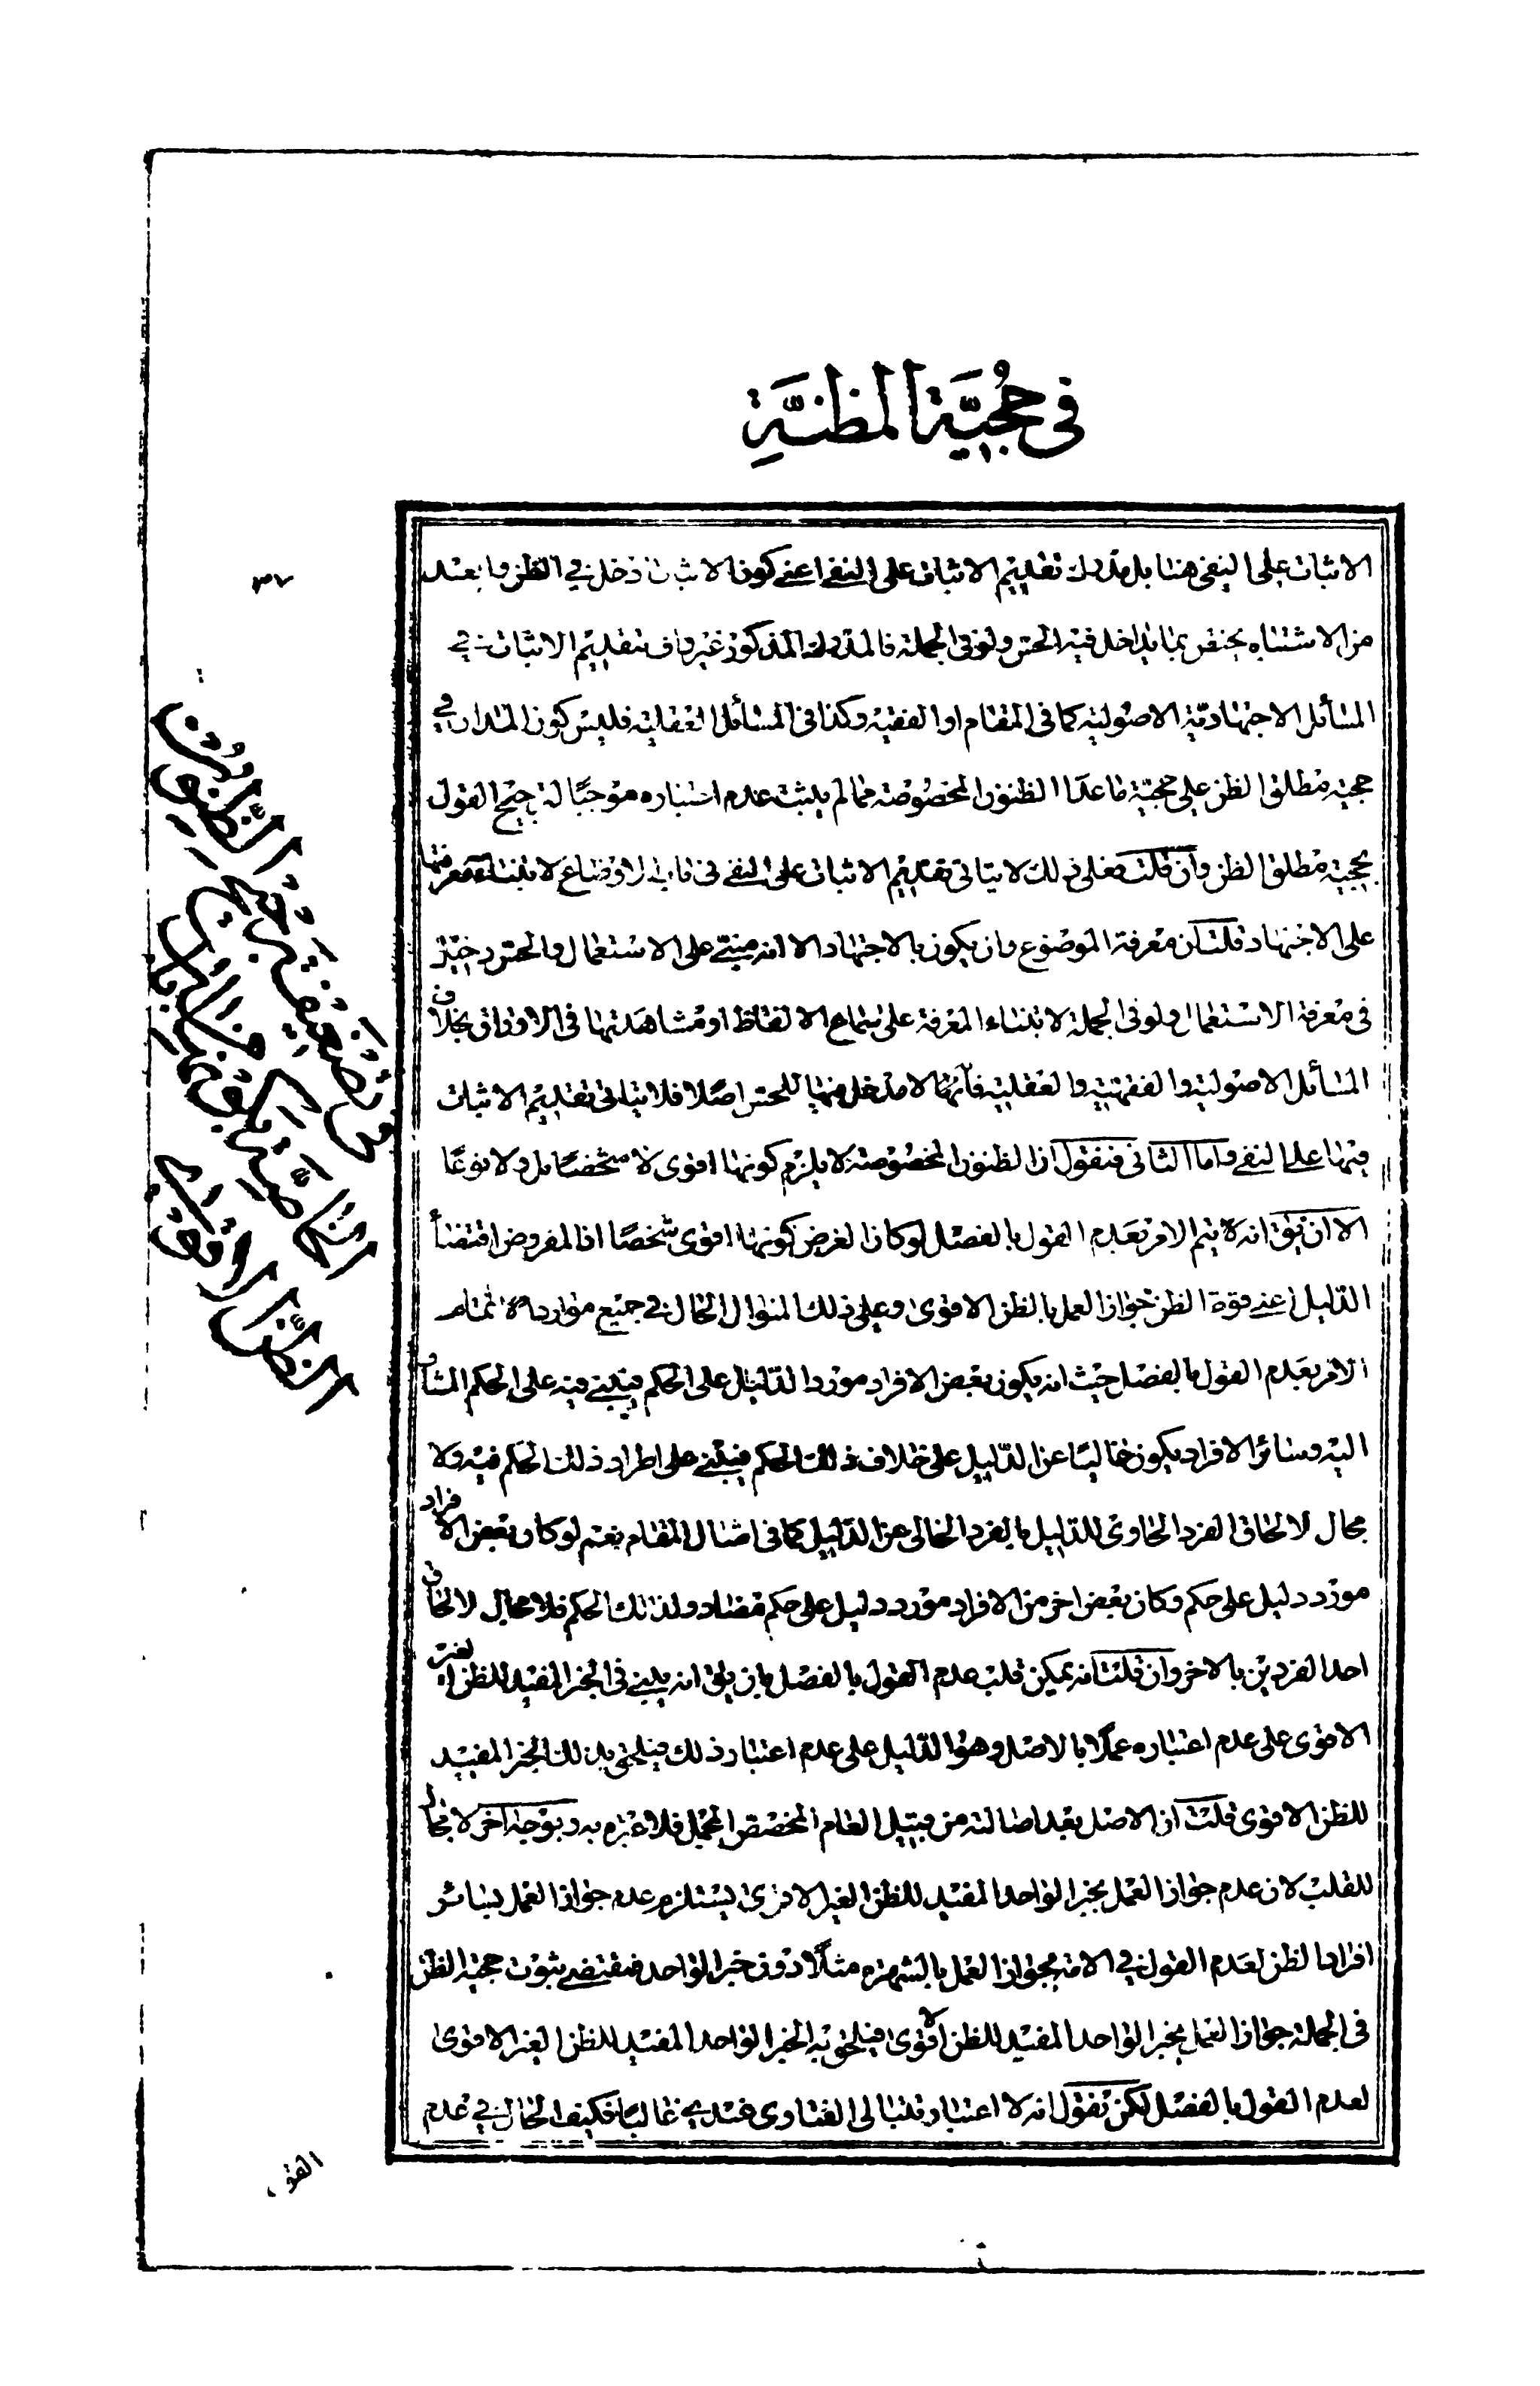 في حجية المظنة
٣٧
الاثبات على النفي هنا بل مدرك تقديم الاثبات على النفي اعني كون الاثبات دخل في الظن وابعد
من الاشتباه يختص بما يداخل فيه الحس ولو في الجملة فالمدرك المذكور غير واف بتقديم الاثبات في
المسائل الاجتهادية الاصولية كما في المقام او الفقهية وكذا في المسائل العقلية فليس كون المدار في
حجية مطلق الظن على حجية ما عدا الظنون المخصوصة مما لم يثبت عدم اعتباره موجبا لترجيح القول
بحجية مطلق الظن وان قلت فعلى ذلك لا يتاتى تقديم الاثبات على النفي في باب الاوضاع لابتناء معرفتها
على الاجتهاد قلت ان معرفة الموضوع وان يكون بالاجتهاد الا انه مبتنى على الاستعمال والحس دخيل
في معرفة الاستعمال ولو في الجملة لابتناء المعرفة على سماع الالفاظ او مشاهدتها في الاوراق بخلاف
المسائل الاصولية والفقهية والعقلية فانها لا مدخل فيها للحس اصلا فلا يتاتى تقديم الاثبات
فيها على النفي واما الثاني فنقول ان الظنون المخصوصة لا يلزم كونها اقوى لا شخصا بل ولا نوعا
الا ان يق انه لا يتم الامر بعدم القول بالفصل لو كان الغرض كونها اقوى شخصا اذ المفروض اقتضاء
الدليل اعني قوة الظن جواز العمل بالظن الاقوى وعلى ذلك المنوال الحال في جميع موارد اتمام
الامر بعدم القول بالفصل حيث انه يكون بعض الافراد مورد الدليل على الحكم فيبنى فيه على الحكم المشار
اليه وسائر الافراد يكون خاليا عن الدليل على خلاف ذلك الحكم فيبنى على اطراد ذلك الحكم فيه ولا
مجال لالحاق الفرد الحاوي للدليل بالفرد الخالي عن الدليل كما في امثال المقام نعم لو كان بعض الافراد
مورد دليل على حكم وكان بعض اخر من الافراد مورد دليل على حكم مضاد ولذلك الحكم فلا مجال لالحاق
احد الفردين بالاخر وان قلت انه يمكن قلب عدم القول بالفصل بان يق انه يبنى في الخبر المفيد للظن الغير
الاقوى على عدم اعتباره عملا بالاصل وهو الدليل على عدم اعتبار ذلك فيلحق بذلك الخبر المفيد
للظن الاقوى قلت ان الاصل بعد اصالته من قبيل العام المخصص المجمل فلا عبرة به وبوجه آخر لا مجال
للقلب لان عدم جواز العمل بخبر الواحد المفيد للظن الغير الاقوى يستلزم عدم جواز العمل بسائر
افراد الظن لعدم القول في الامة بجواز العمل بالشهرة مثلا دون خبر الواحد فمقتضى ثبوت حجية الظن
في الجملة جواز العمل بخبر الواحد المفيد للظن الاقوى فيلحق به الخبر الواحد المفيد للظن الغير الاقوى
لعدم القول بالفصل لكن نقول انه لا اعتبار قلنا الى الفتاوى عندي غالبا فكيف الحال في عدم
القو